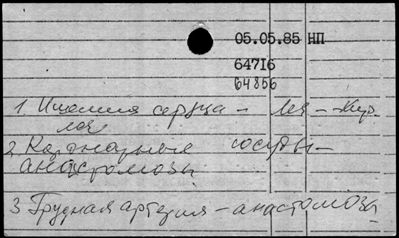 05.05.85 НП
64716
64856
1. Ишемия сердца – леч – хир.
леч
2 Коронарные сосуды –
анастомозы
3 Грудная артерия – анастомозы